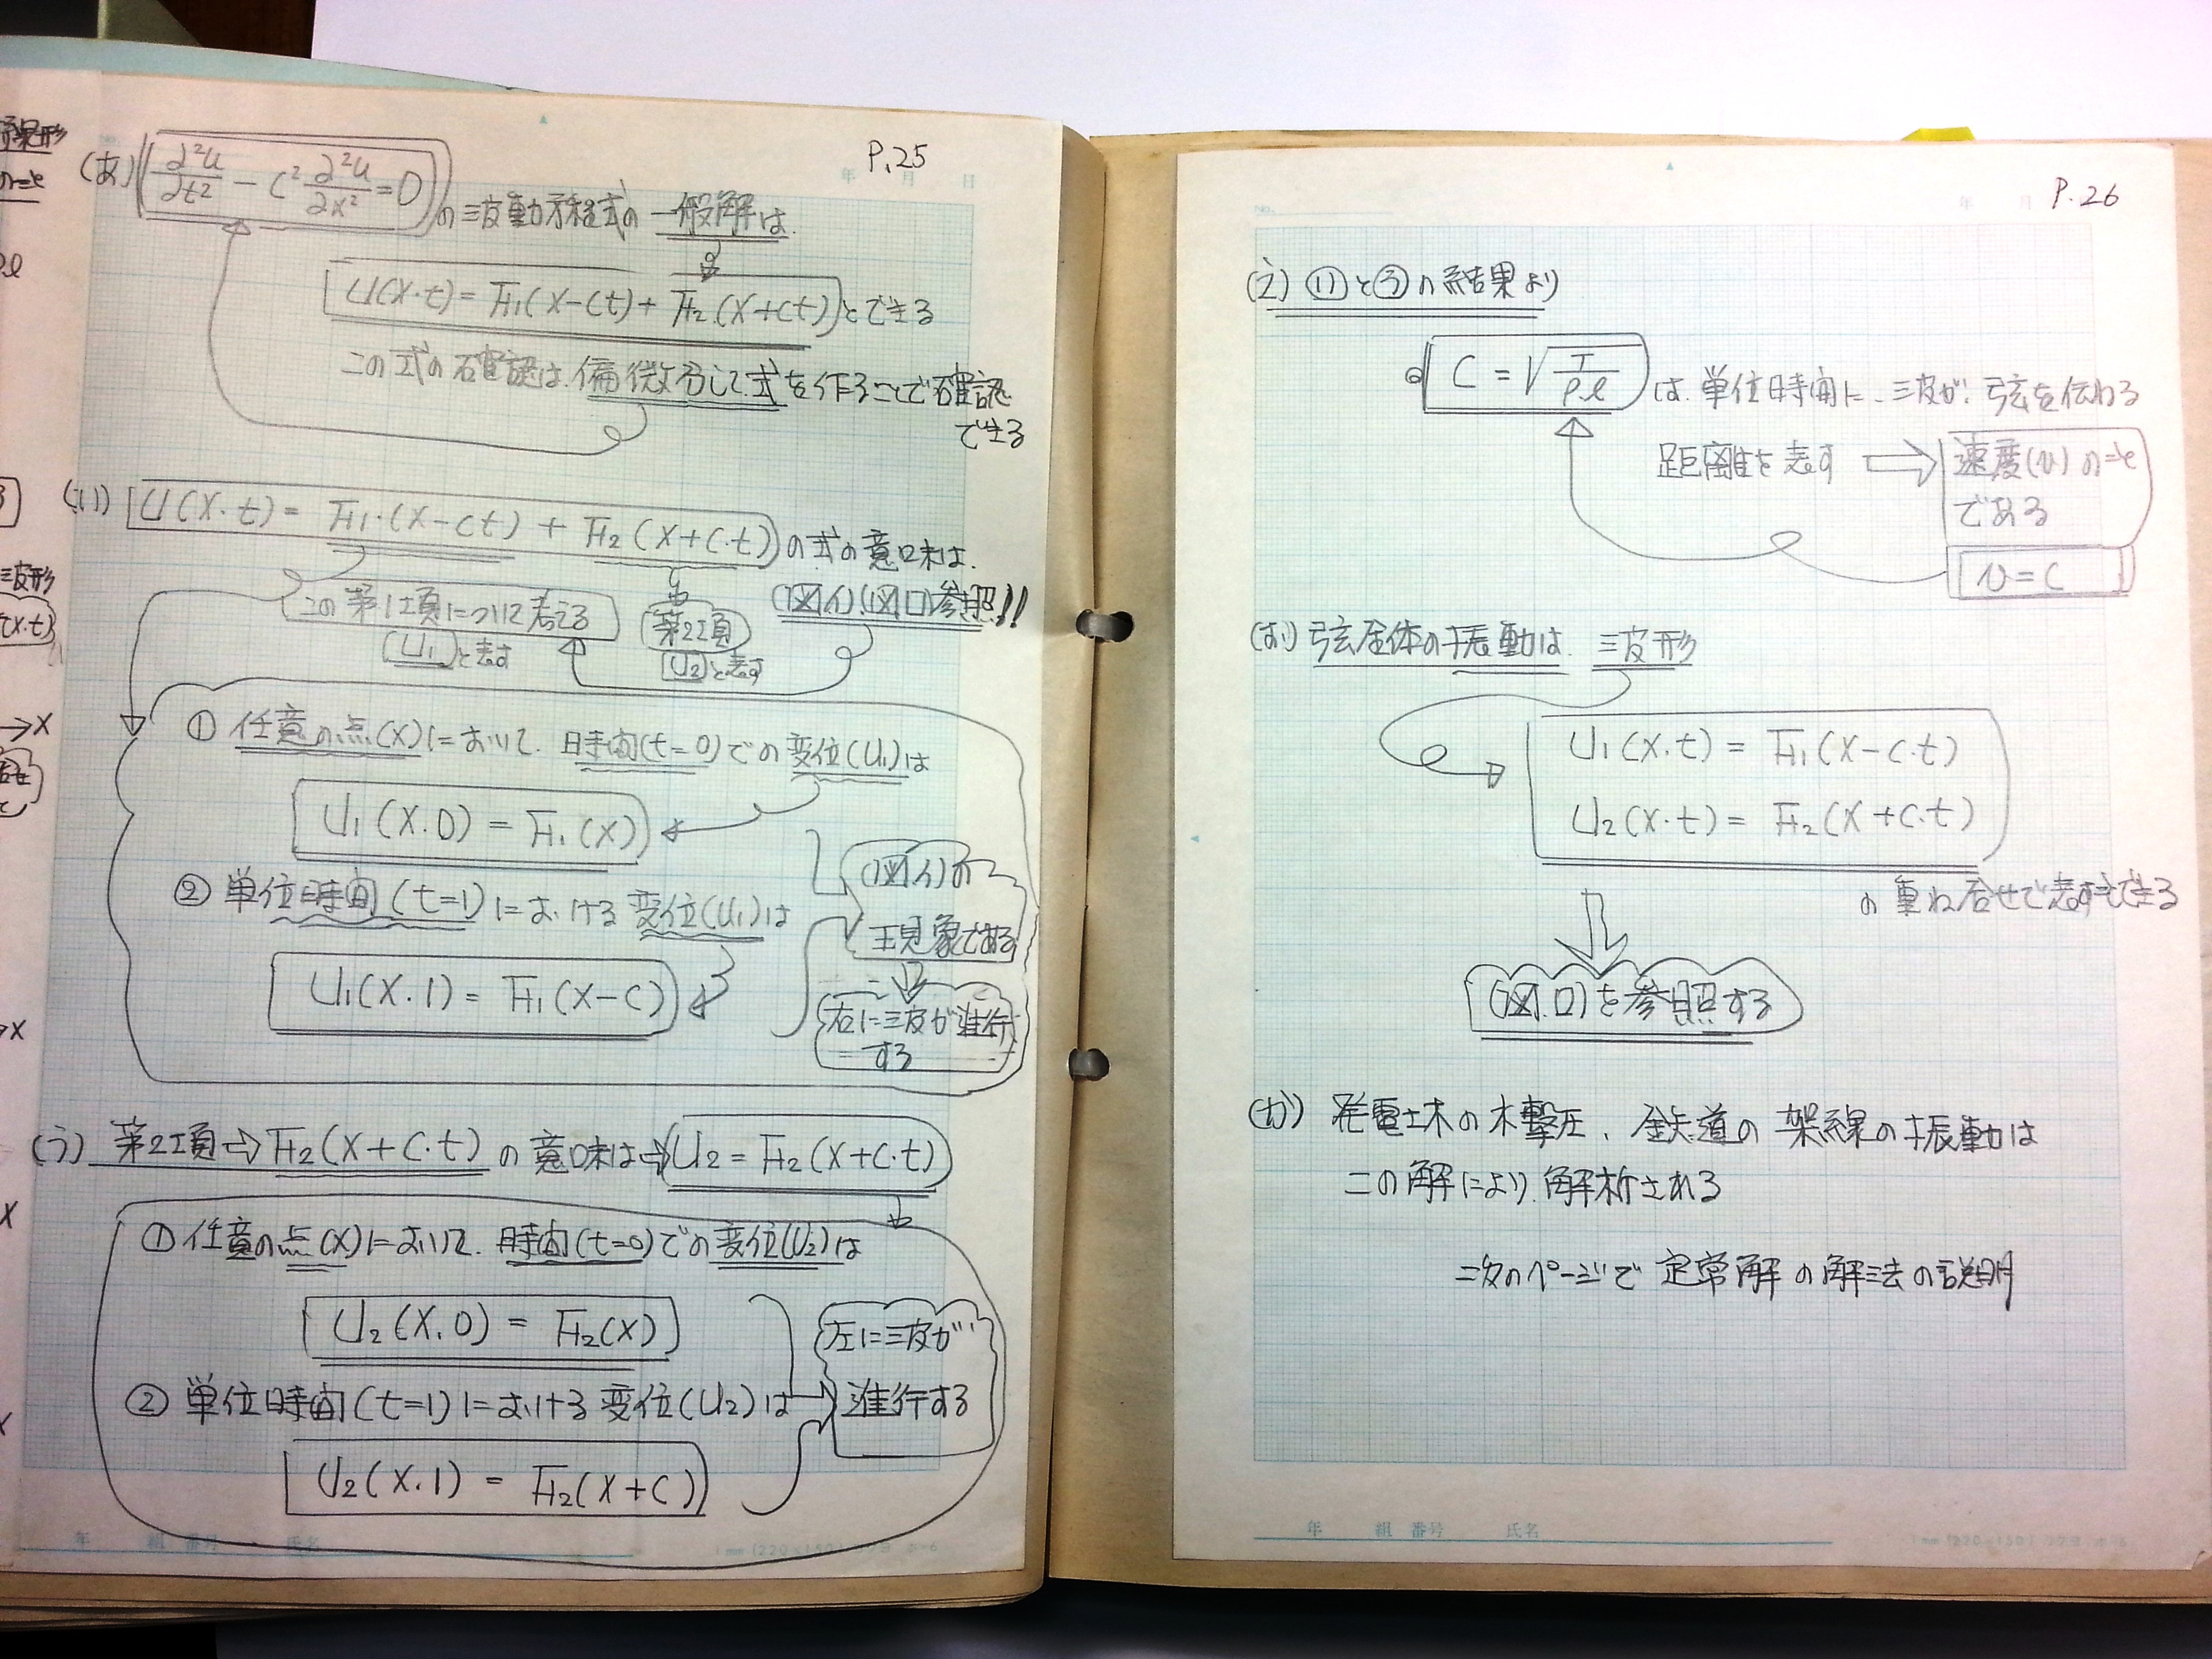 P.25
年 月 日
(あ) ∂²u/∂t² − C² ∂²u/∂x² = 0 の波動方程式の一般解は.
U(x・t) = F1(x−ct) + F2(x+ct) とできる
この式の確認は.偏微分して.式を作ることで確認
できる
(い) U(x・t) = F1・(x−ct) + F2(x+c.t) の式の意味は.
(図イ)(図ロ)参照!!
この第1項について考える
(U1)と表す
第2項
(U2)と表す
① 任意の点(x)において.時間(t=0)での変位(U1)は
U1(x.0) = F1(x)
② 単位時間(t=1)における変位(U1)は
U1(x.1) = F1(x−c)
(図イ)の
現象である
右に波が進行
する
(う) 第2項⇨F2(x+c.t)の意味は⇨U2 = F2(x+c.t)
① 任意の点(x)において.時間(t=0)での変位(U2)は
U2(x.0) = F2(x)
② 単位時間(t=1)における変位(U2)は
U2(x.1) = F2(x+c)
左に波が
進行する
年 組 番号 氏名
P.26
No.
年 月
(え) (い)と(う)の結果より
C = √(T/ρe) は.単位時間に.波が.弦を伝わる
距離を表す ⇨ 速度(v)のこと
である
v = c
(お) 弦全体の振動は.波形
U1(x.t) = F1(x−c.t)
U2(x.t) = F2(x+c.t)
の重ね合せで表すことできる
(図.ロ)を参照する
(か) 発電土木の水撃圧、鉄道の架線の振動は
この解により.解析される
次のページで定常解の解法の説明
年 組 番号 氏名